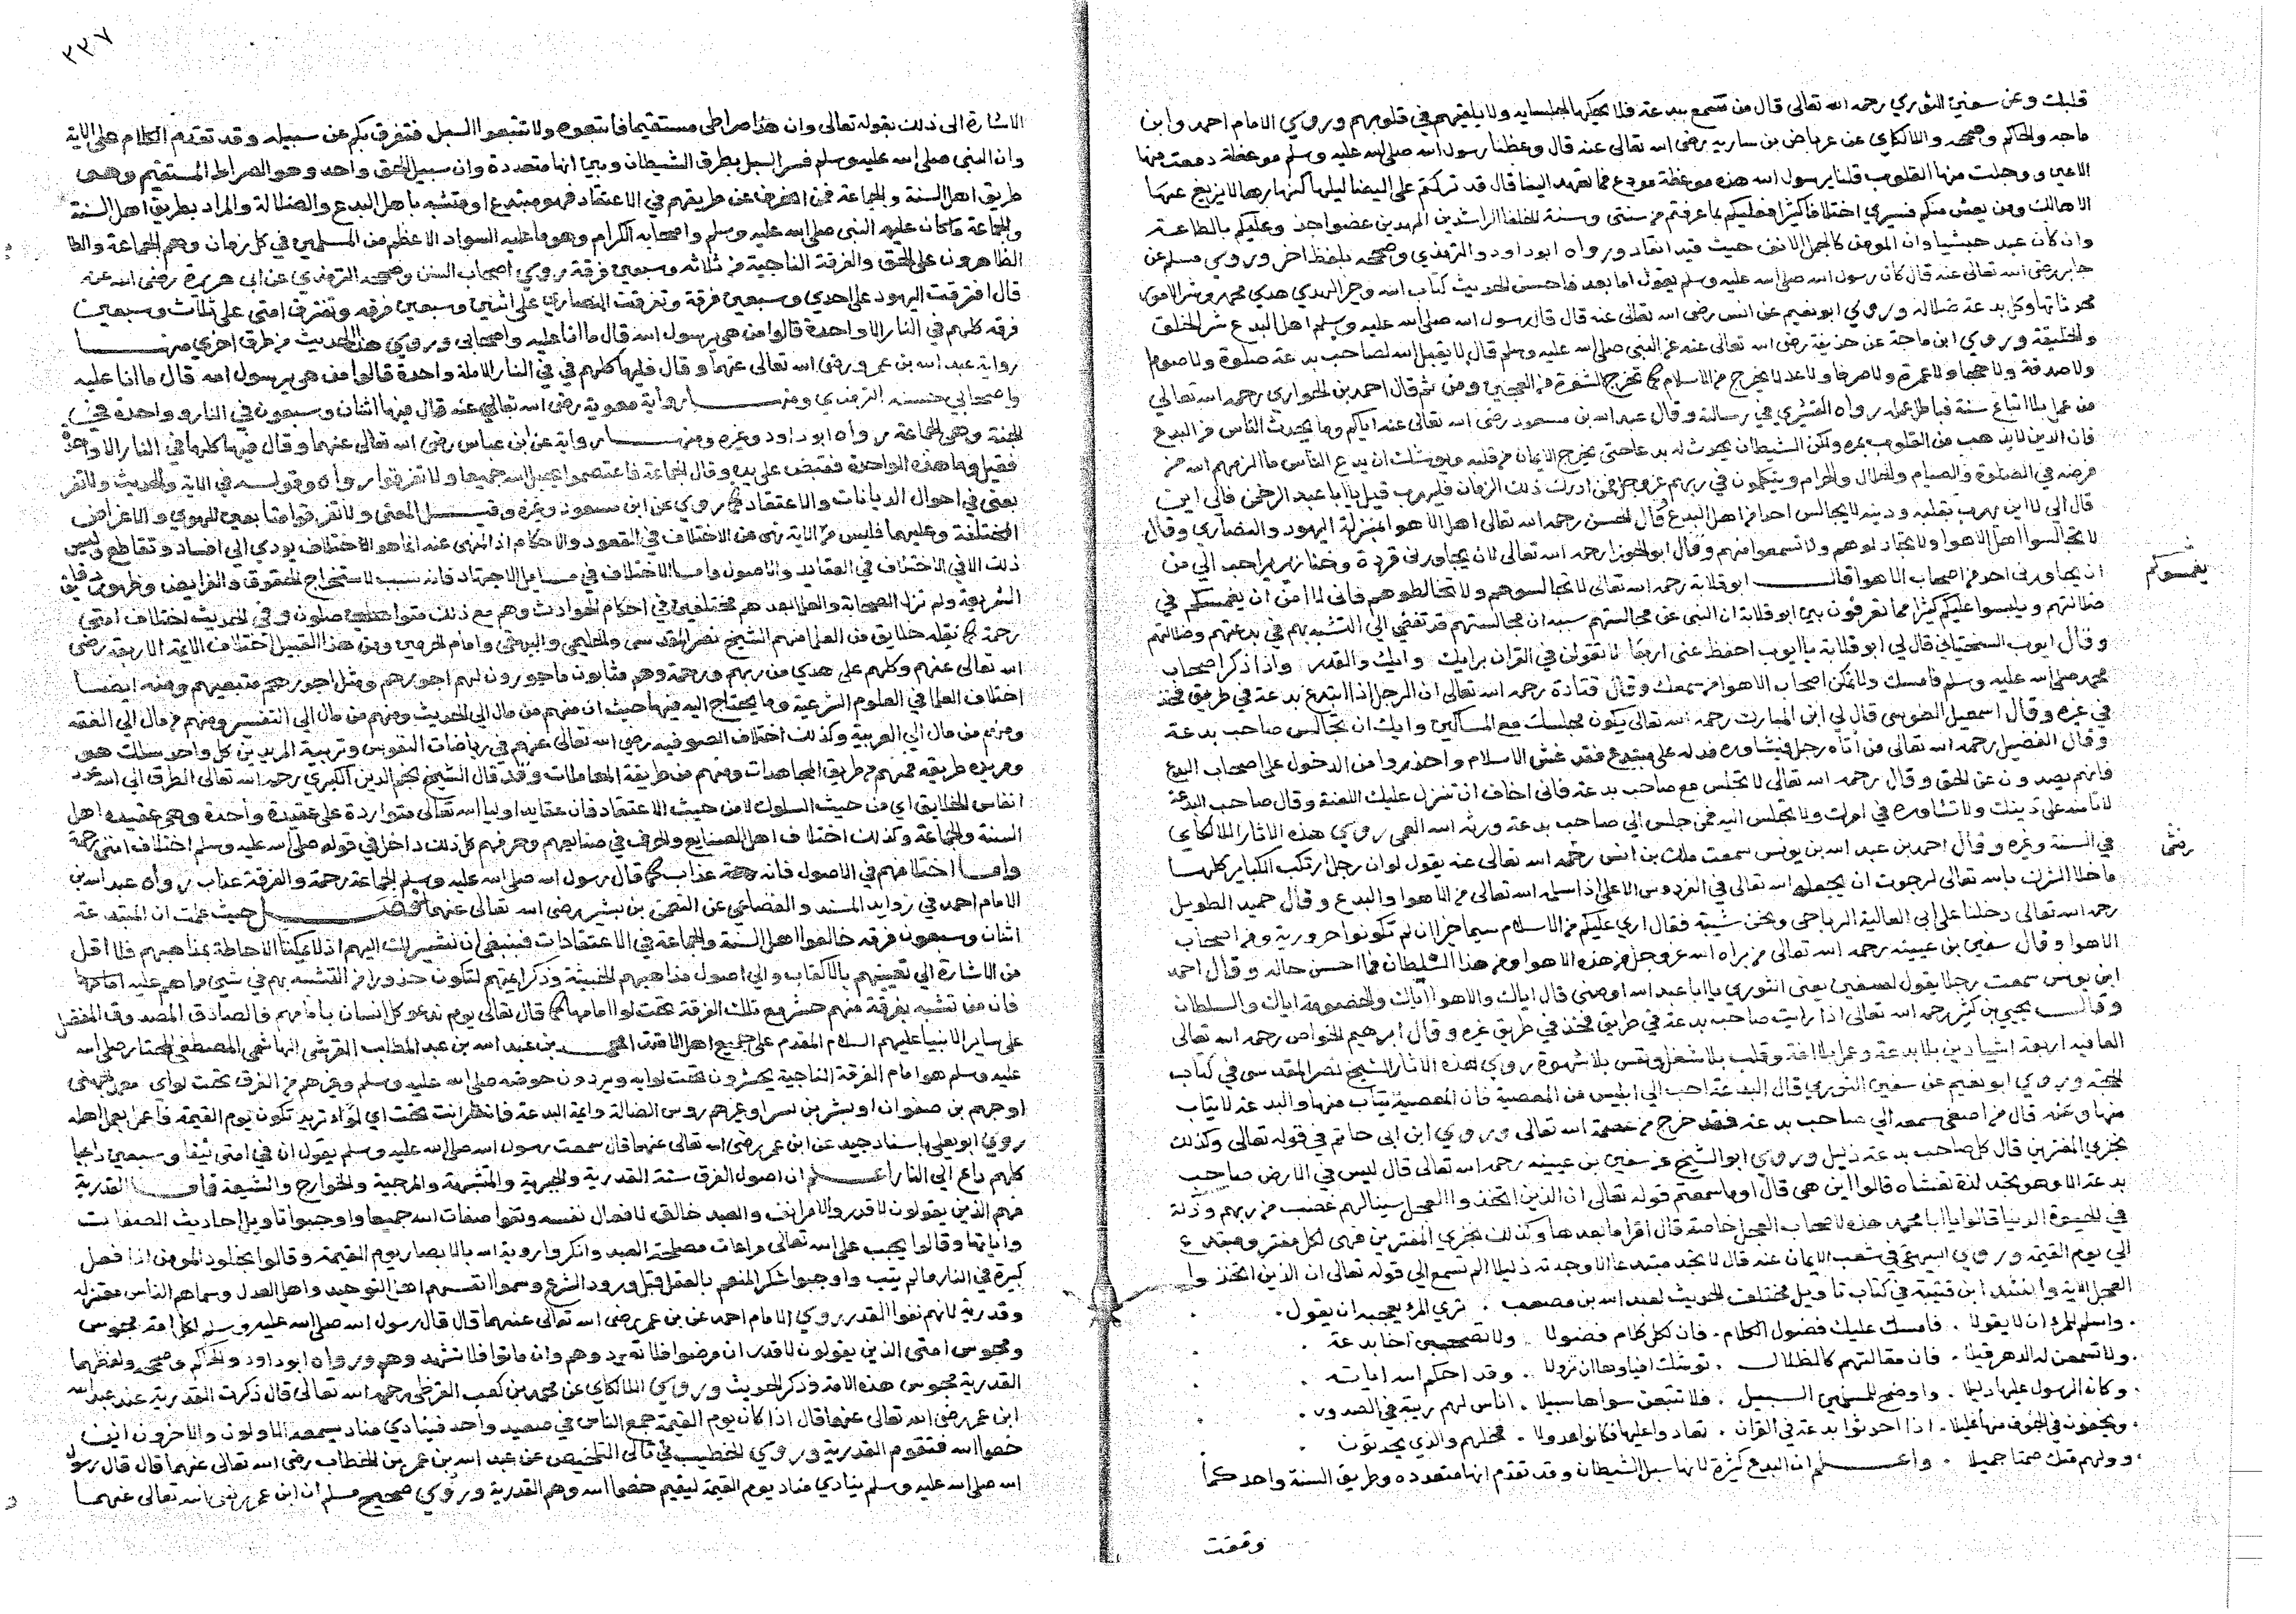 قلبك وعن سفين الثوري رحمه الله تعالى قال من سمع ببدعة فلا يحكها لجلسايه ولا يلقيهم في قلوبهم وروي الامام احمد وابن
ماجه والحاكم وصححه واللالكاي عن عرباض بن سارية رضى الله تعالى عنه قال وعظنا رسول الله صلى الله عليه وسلم موعظة دمعت منها
الاعين ووجلت منها القلوب قلنا يرسول الله هذه موعظة مودع فما تعهد الينا قال قد تركتم على البيضا ليلها كنهارها لا يزيغ عنها
الا هالك ومن يعش منكم فسيري اختلافا كثيرا فعليكم بما عرفتم من سنتي وسنة الخلفا الراشدين المهديين عضوا وعليكم بالطاعة
وان كان عبد حبشيا وان المومن كالجمل الانف حيث قيد انقاد ورواه ابو داود والترمذي وصححه بلفظ اخر وروى مسلم عن
جابر رضى الله تعالى عنه قال كان رسول الله صلى الله عليه وسلم يقول اما بعد فاحسن الحديث كتاب الله وخير الهدي هدي محمد وشر الامور
محدثاتها وكل بدعة ضلالة وروي ابو نعيم عن انس رضى الله تعالى عنه قال قال رسول الله صلى الله عليه وسلم اهل البدع شر الخلق
والخليقة وروي ابن ماجة عن حذيفة رضى الله تعالى عنه عن النبى صلى الله عليه وسلم قال لا يقبل الله لصاحب بدعة صلوة ولا صوما
ولا صدقة ولا حجا ولا عمرة ولا صرفا ولا عدلا يخرج من الاسلام كما تخرج الشعرة من العجين ومن ثم قال احمد بن الحواري رحمه الله تعالى
من عمل بلا اتباع سنة فباطل عمله رواه القشيري في رسالته وقال عبد الله بن مسعود رضى الله تعالى عنه اياكم وما يحدث الناس من البدع
فان الدين لا يذهب من القلوب بمره ولكن الشيطان يحدث له بدعا حتى يخرج الايمان من قلبه ويوشك ان يدع الناس ما الزمهم الله من
فرضه في الصلوة والصيام والحلال والحرام ويتكلمون في ربهم عز وجل فمن ادرك ذلك الزمان فليهرب قيل يا ابا عبد الرحمن فالى اين
قال الى لا اين يهرب بقلبه ودينه لا يجالس احدا من اهل البدع قال الحسن رحمه الله تعالى اهل الاهوا بمنزلة اليهود والنصارى وقال
لا تجالسوا اهل الاهوا ولا تجادلوهم ولا تسمعوا منهم وقال ابو الجوزا رحمه الله تعالى لان يجاورنى قردة وخنازير احب الي من
ان يجاورنى احد من اصحاب الاهوا قال ابو قلابة رحمه الله تعالى لا تجالسوهم ولا تخالطوهم فانى لا امن ان يغمسكم في
يغمسوكم
ضلالتهم ويلبسوا عليكم كثيرا مما تعرفون بين ابو قلابة ان النهى عن مجالستهم سببه ان مجالستهم قد تفضي الي التشبه بهم في بدعتهم وضلالتهم
وقال ايوب السختياني قال لي ابو قلابة يا ايوب احفظ عنى اربعا لا تقولن في القران برايك واياك والقدر واذا ذكر اصحاب
محمد صلى الله عليه وسلم فامسك ولا تمكن اصحاب الاهوا من سمعك وقال قتادة رحمه الله تعالى ان الرجل اذا ابتدع بدعة في طريق فخذ
في غيره وقال اسمعيل الطوسى قال لي ابن المبارك رحمه الله تعالى يكون مجلسك مع المساكين واياك ان تجالس صاحب بدعة
وقال الفضيل رحمه الله تعالى من اتاه رجل فشاوره فدله على مبتدع فقد غش الاسلام واحذروا من الدخول على اصحاب البدع
فانهم يصدون عن الحق وقال رحمه الله تعالى لا تجلس مع صاحب بدعة فانى اخاف ان تنزل عليك اللعنة وقال صاحب البدعة
لا تامنه على دينك ولا تشاوره في امرك ولا تجلس اليه فمن جلس الى صاحب بدعة ورثه الله العمى روي هذه الاثار اللالكاي
في السنة وغيره وقال احمد بن عبد الله بن يونس سمعت ملك بن انس رحمه الله تعالى عنه يقول لو ان رجلا ارتكب الكباير كلها
ما خلا الشرك بالله تعالى لرجوت ان يجعله الله تعالى في الفردوس الاعلى اذا سلمه الله تعالى من الاهوا والبدع وقال حميد الطويل
رحمه الله تعالى دخلنا على ابى العالية الرياحى ونحن شيبة فقال اري عليكم من الاسلام سيما خير ان لم تكونوا حرورية ومن اصحاب
الاهوا وقال سفين بن عيينه رحمه الله تعالى من براه الله عز وجل من هذه الاهوا ومن هذا السلطان فما احسن حاله وقال احمد
ابن يونس سمعت رجلا يقول لسفين يعنى الثوري يا ابا عبد الله اوصنى قال اياك والاهوا اياك والخصومة اياك والسلطان
وقال يحيى بن كثير رحمه الله تعالى اذا رايت صاحب بدعة في طريق فخذ في طريق غيره وقال ابرهيم الخواص رحمه الله تعالى
العافية اربعة اشيا دين بلا بدعة وعمل بلا افة وقلب بلا شغل ونفس بلا شهوة روي هذه الاثار الشيخ نصر المقدسى في كتاب
الحجة وروي ابو نعيم عن سفين الثوري قال البدعة احب الي ابليس من المعصية فان المعصية يتاب منها والبدعة لا يتاب
منها وعنه قال من اصغى سمعه الي صاحب بدعة فقد خرج من عصمة الله تعالى وروي ابن ابى حاتم في قوله تعالى وكذلك
نجزي المفترين قال كل صاحب بدعة ذليل وروي ابو الشيخ عن سفين بن عيينه رحمه الله تعالى قال ليس في الارض صاحب
بدعة الا وهو يجد لذة تغشاه قالوا اين هى قال اوما سمعتم قوله تعالى ان الذين اتخذوا العجل سينالهم غضب من ربهم وذلة
في الحيوة الدنيا قالوا يا ابا محمد هذه لاصحاب العجل خاصة قال اقرا ما بعدها وكذلك نجزي المفترين فهى لكل مفتر ومبتدع
الي يوم القيمة وروي البيهقي في شعب الايمان عنه قال لا تجد مبتدعا الا وجدته ذليلا الم تسمع الي قوله تعالى ان الذين اتخذوا
العجل الاية وانشد ابن قتيبة في كتاب تاويل مختلف الحديث لعبد الله بن مصعب . تري المرء يعجبه ان يقول .
. واسلم للمرء ان لا يقولا . فامسك عليك فضول الكلام . فان لكل كلام فضولا . ولا تصحبن اخا بدعة .
. ولا تسمعن له الدهر قيلا . فان مقالتهم كالظلال . توشك افياوها ان تزولا . وقد احكم الله اياته .
. وكان الرسول عليها دليلا . واوضح للمسلمين السبيل . فلا تتبعن سواها سبيلا . اناس لهم ريبة في الصدور .
. ويخفون في الجوف منها غليلا . اذا احدثوا بدعة في القران . تعادوا عليها فكانوا عدولا . فخلهم والذي يحدثون .
. وولهم منك صمتا جميلا . واعلم ان البدع كثيرة لانها سبل الشيطان وقد تقدم انها متعدده وطريق السنة واحد كما
وقعت
٢٣٧
الاشارة الى ذلك بقوله تعالى وان هذا صراطى مستقيما فاتبعوه ولا تتبعوا السبل فتفرق بكم عن سبيله وقد تقدم الكلام على الاية
وان النبى صلى الله عليه وسلم فسر السبل بطرق الشيطان وبين انها متعددة وان سبيل الحق واحد وهو الصراط المستقيم وهى
طريق اهل السنة والجماعة فمن انحرف عن طريقهم في الاعتقاد فهو مبتدع او متشبه باهل البدع والضلالة والمراد بطريق اهل السنة
والجماعة ما كان عليه النبى صلى الله عليه وسلم واصحابه الكرام وهو ما عليه السواد الاعظم من المسلمين في كل زمان وهم الجماعة والطا
الظاهرون على الحق والفرقة الناجية من ثلاثه وسبعين فرقة روي اصحاب السنن وصححه الترمذي عن ابى هريرة رضى الله عنه
قال افترقت اليهود على احدي وسبعين فرقة وتفرقت النصاري على اثنين وسبعين فرقه وتفترق امتى على ثلاث وسبعين
فرقه كلهم في النار الا واحدة قالوا من هى يرسول الله قال ما انا عليه واصحابى وروي هذا الحديث من طرق اخري منها
رواية عبد الله بن عمرو رضى الله تعالى عنهما وقال فيها كلهم في النار الا ملة واحدة قالوا من هى يرسول الله قال ما انا عليه
واصحابى حسنه الترمذي ومنها رواية معوية رضى الله تعالى عنه قال فيها اثنان وسبعون في النار وواحدة في
الجنة وهى الجماعة رواه ابو داود وغيره ومنها رواية عن ابن عباس رضى الله تعالى عنهما وقال فيها كلها في النار الا واحدة
فقيل وما هذه الواحدة فقبض على يده وقال الجماعة فاعتصموا بحبل الله جميعا ولا تفرقوا رواه وقوله في الاية والحديث ولا تفر
يعنى في احوال الديانات والاعتقاد كما روي عن ابن مسعود وغيره وقيل المعنى ولا تفرقوا متابعين للهوي والاغراض
المختلفة وعليهما فليس في الاية نهى عن الاختلاف في الفروع والاحكام اذ المنهى عنه انما هو الاختلاف يودي الى افساد وتقاطع وليس
ذلك الا في الاختلاف في العقايد والاصول واما الاختلاف في مسايل الاجتهاد فانه سبب لاستخراج الحقوق والفرايض وظهور دقايق
الشريعة ولم تزل الصحابة والعلما بعدهم مختلفين في احكام الحوادث وهم مع ذلك متواصلون وفي الحديث اختلاف امتى
رحمة كما نقله خلايق من العلما منهم الشيخ نصر المقدسى والحليمى والبيهقى وامام الحرمين ومن هذا القبيل اختلاف الايمة الاربعة رضى
الله تعالى عنهم وكلهم على هدي من ربهم ورحمة وهم مثابون ماجورون لهم اجورهم ومثل اجور متبعيهم ومنه ايضا
اختلاف العلما في العلوم الشرعية وما يحتاج اليه فيها حيث ان منهم من مال الي الحديث ومنهم من مال الي التفسير ومنهم من مال الي الفقه
ومنهم من مال الي العربية وكذلك اختلاف الصوفيه رضى الله تعالى عنهم في رياضات النفوس وتربية المريدين كل واحد سلك هو
ومريده طريقه فمنهم من طريق المجاهدات ومنهم من طريقة المعاملات وقد قال الشيخ نجم الدين الكبري رحمه الله تعالى الطرق الى الله بعدد
انفاس الخلايق اي من حيث السلوك لا من حيث الاعتقاد فان عقايد اوليا الله تعالى متواردة على عقيدة واحدة وهى عقيدة اهل
السنة والجماعة وكذلك اختلاف اهل الصنايع والحرف في صنايعهم وحرفهم كل ذلك داخل في قوله صلى الله عليه وسلم اختلاف امتى رحمة
واما اختلافهم في الاصول فانه عذاب كما قال رسول الله صلى الله عليه وسلم الجماعة رحمة والفرقة عذاب رواه عبد الله بن
الامام احمد في زوايد المسند والقضاعى عن النعمن بن بشير رضى الله تعالى عنهما فصل حيث علمت ان المبتدعة
اثنان وسبعون فرقه خالفوا اهل السنة والجماعة في الاعتقادات فينبغى ان نشير لك اليهم اذ لا يمكننا الاحاطة بمذاهبهم فلا اقل
من الاشارة الي تعيينهم بالالقاب والي اصول مذاهبهم الخبيثة وذكر ايمتهم لتكون حذورا من التشبه بهم في شيى مما هم عليه
فان من تشبه بفرقة منهم حشر مع تلك الفرقة تحت لوا امامها كما قال تعالى يوم ندعو كل اناس بامامهم فالصادق المصدوق المفضل
على ساير الانبيا عليهم السلام المقدم على جميع اهل محمد بن عبد الله بن عبد المطلب القرشى الهاشمى المصطفى المختار صلى الله
عليه وسلم هو امام الفرقة الناجية يحشرون تحت لوايه ويردون حوضه صلى الله عليه وسلم وغيرهم من الفرق تحت لواي معبد الجهنى
او جهم بن صفوان او بشر بن او غيرهم روس الضلالة وايمة البدعة فانظر انت تحت اي لواء تريد تكون يوم القيمة فاعمل بعمل اهله
روي ابو يعلى باسناد جيد عن ابن عمر رضى الله تعالى عنهما قال سمعت رسول الله صلى الله عليه وسلم يقول ان في امتى نيفا وسبعين داعيا
كلهم داع الي النار اعلم ان اصول الفرق ستة القدرية والجبرية والمشبهة والمرجية والخوارج والشيعة فاما القدرية
فهم الذين يقولون لا قدر والعبد خالق لافعال نفسه ونفوا صفات الله جميعا واوجبوا تاويل احاديث الصفات
واياتها وقالوا يجب على الله تعالى مراعات مصلحة العبد وانكروا روية الله بالابصار يوم القيمة وقالوا بخلود المومن اذا فعل
كبيرة في النار ما لم يتب واوجبوا شكر المنعم بالعقل قبل ورود الشرع وسموا انفسهم اهل التوحيد واهل العدل وسماهم الناس معتزله
وقدرية لانهم نفوا القدر روي الامام احمد عن بن عمر رضى الله تعالى عنهما قال قال رسول الله صلى الله عليه وسلم لكل امة مجوس
ومجوس امتى الذين يقولون لا قدر ان مرضوا فلا تعودوهم وان ماتوا فلا تشهدوهم ورواه ابو داود والحاكم وصححه ولفظهما
القدرية مجوس هذه الامة وذكر الحديث وروي اللالكاي عن محمد بن كعب القرظى رحمه الله تعالى قال ذكرت القدرية عند عبد الله
ابن عمر رضى الله تعالى عنهما قال اذا كان يوم القيمة جمع الناس في صعيد واحد فينادي مناد يسمعه الاولون والاخرون اين
خصما الله فتقوم القدرية وروي الخطيب في تالى التلخيص عن عبد الله بن عمر بن الخطاب رضى الله تعالى عنهما قال قال رسول
الله صلى الله عليه وسلم ينادي مناد يوم القيمة ليقيم خصما الله وهم القدرية وروي صحيح مسلم ان ابن عمر رضى الله تعالى عنهما